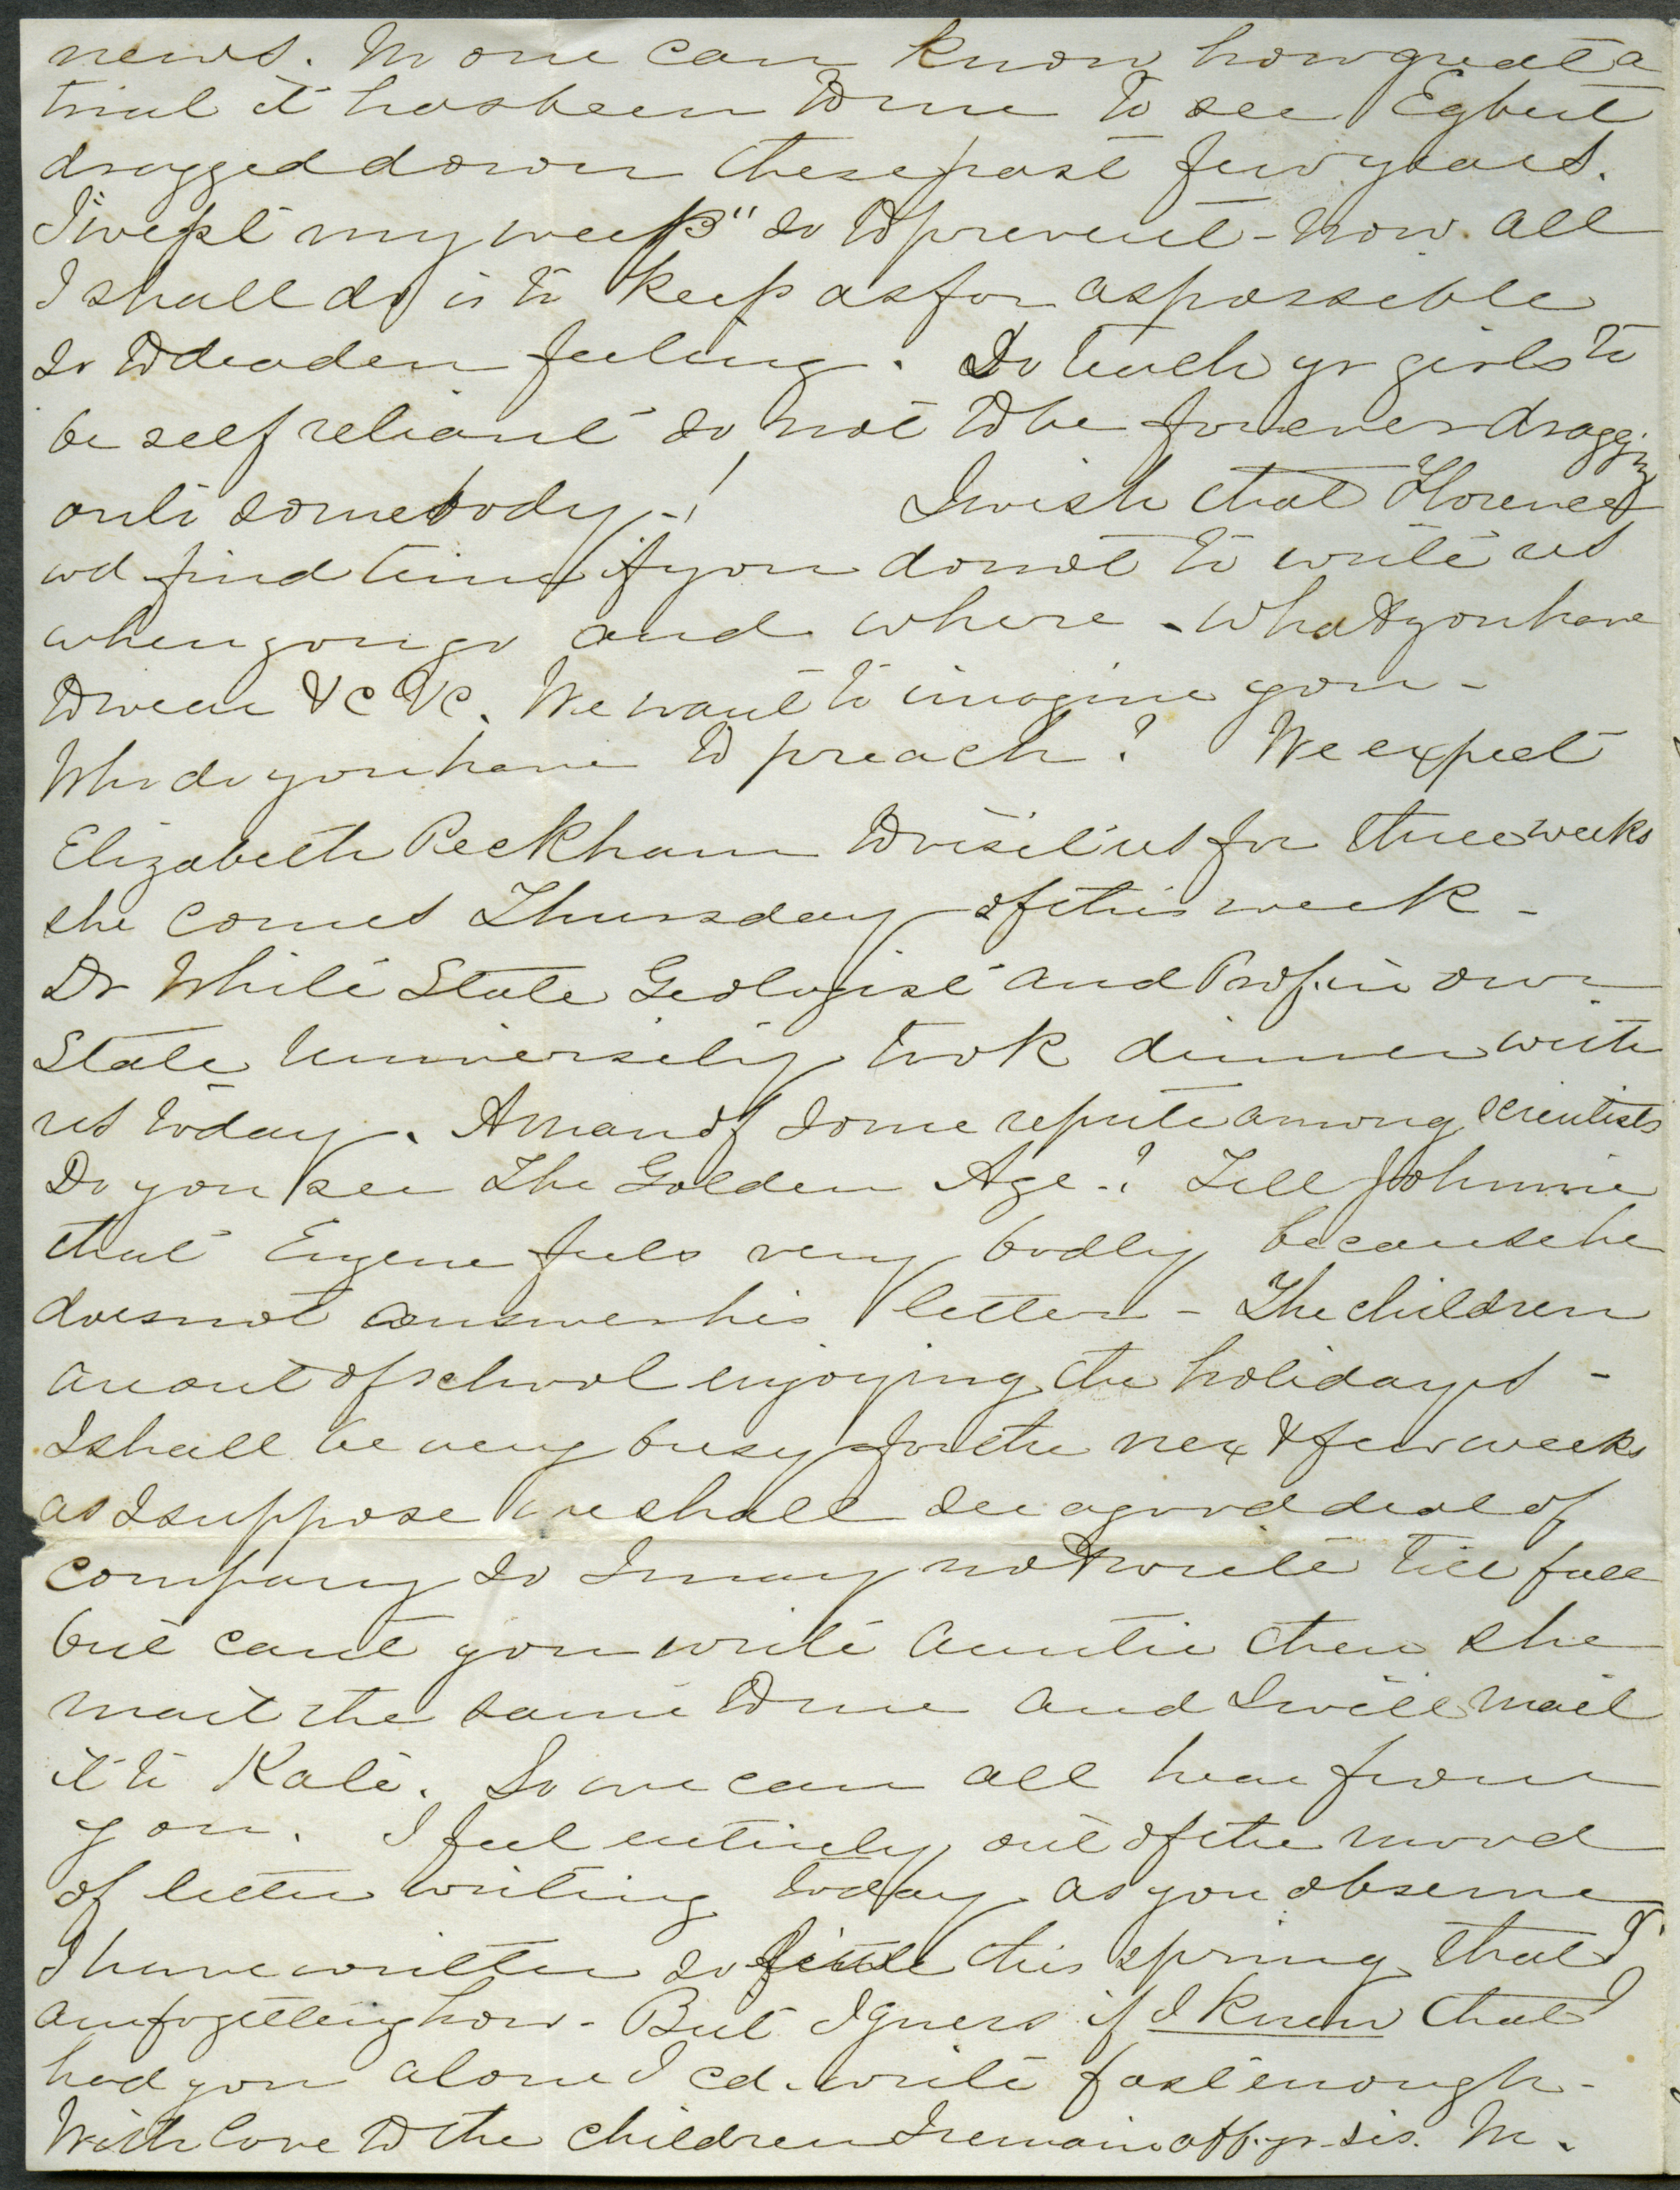 news. No one can know how great a
trial it has been to me to see Egbert
dragged down these past few years.
I "wept my weeps" so to prevent - now all
I shall do is to keep as far as possible
so to deaden feeling. Do teach yr girls to
be self reliant so not to be forever dragging
onto somebody -! I wish that Florence
wd find time if you do not to write us
when you go and where - what you have
to wear &c &c. We want to imagine you -
Who do you have to preach? We expect
Elizabeth Peckham to visit us for three weeks
she comes Thursday of this week -
Dr White State Geologist and Prof. in our
State University took dinner with
us today. A man of some repute among scientists
Do you see The Golden Age -? Tell Johnnie
that Eugene feels very badly because he
does not answer his letter - The children
are out of school enjoying the holidays -
I shall be very busy for the next few weeks
as I suppose we shall see a good deal of
company so I may not write till fall
but cant you write Auntie then she
mail the same to me and I will mail
it to Kate. So we can all hear from
you. I feel entirely out of the mood
of letter writing today as you observe
I have written so little this spring that I
am forgetting how - But I guess if I knew that I
had you alone I cd. write fast enough -
With love to the children I remain aff. yr sis. M.